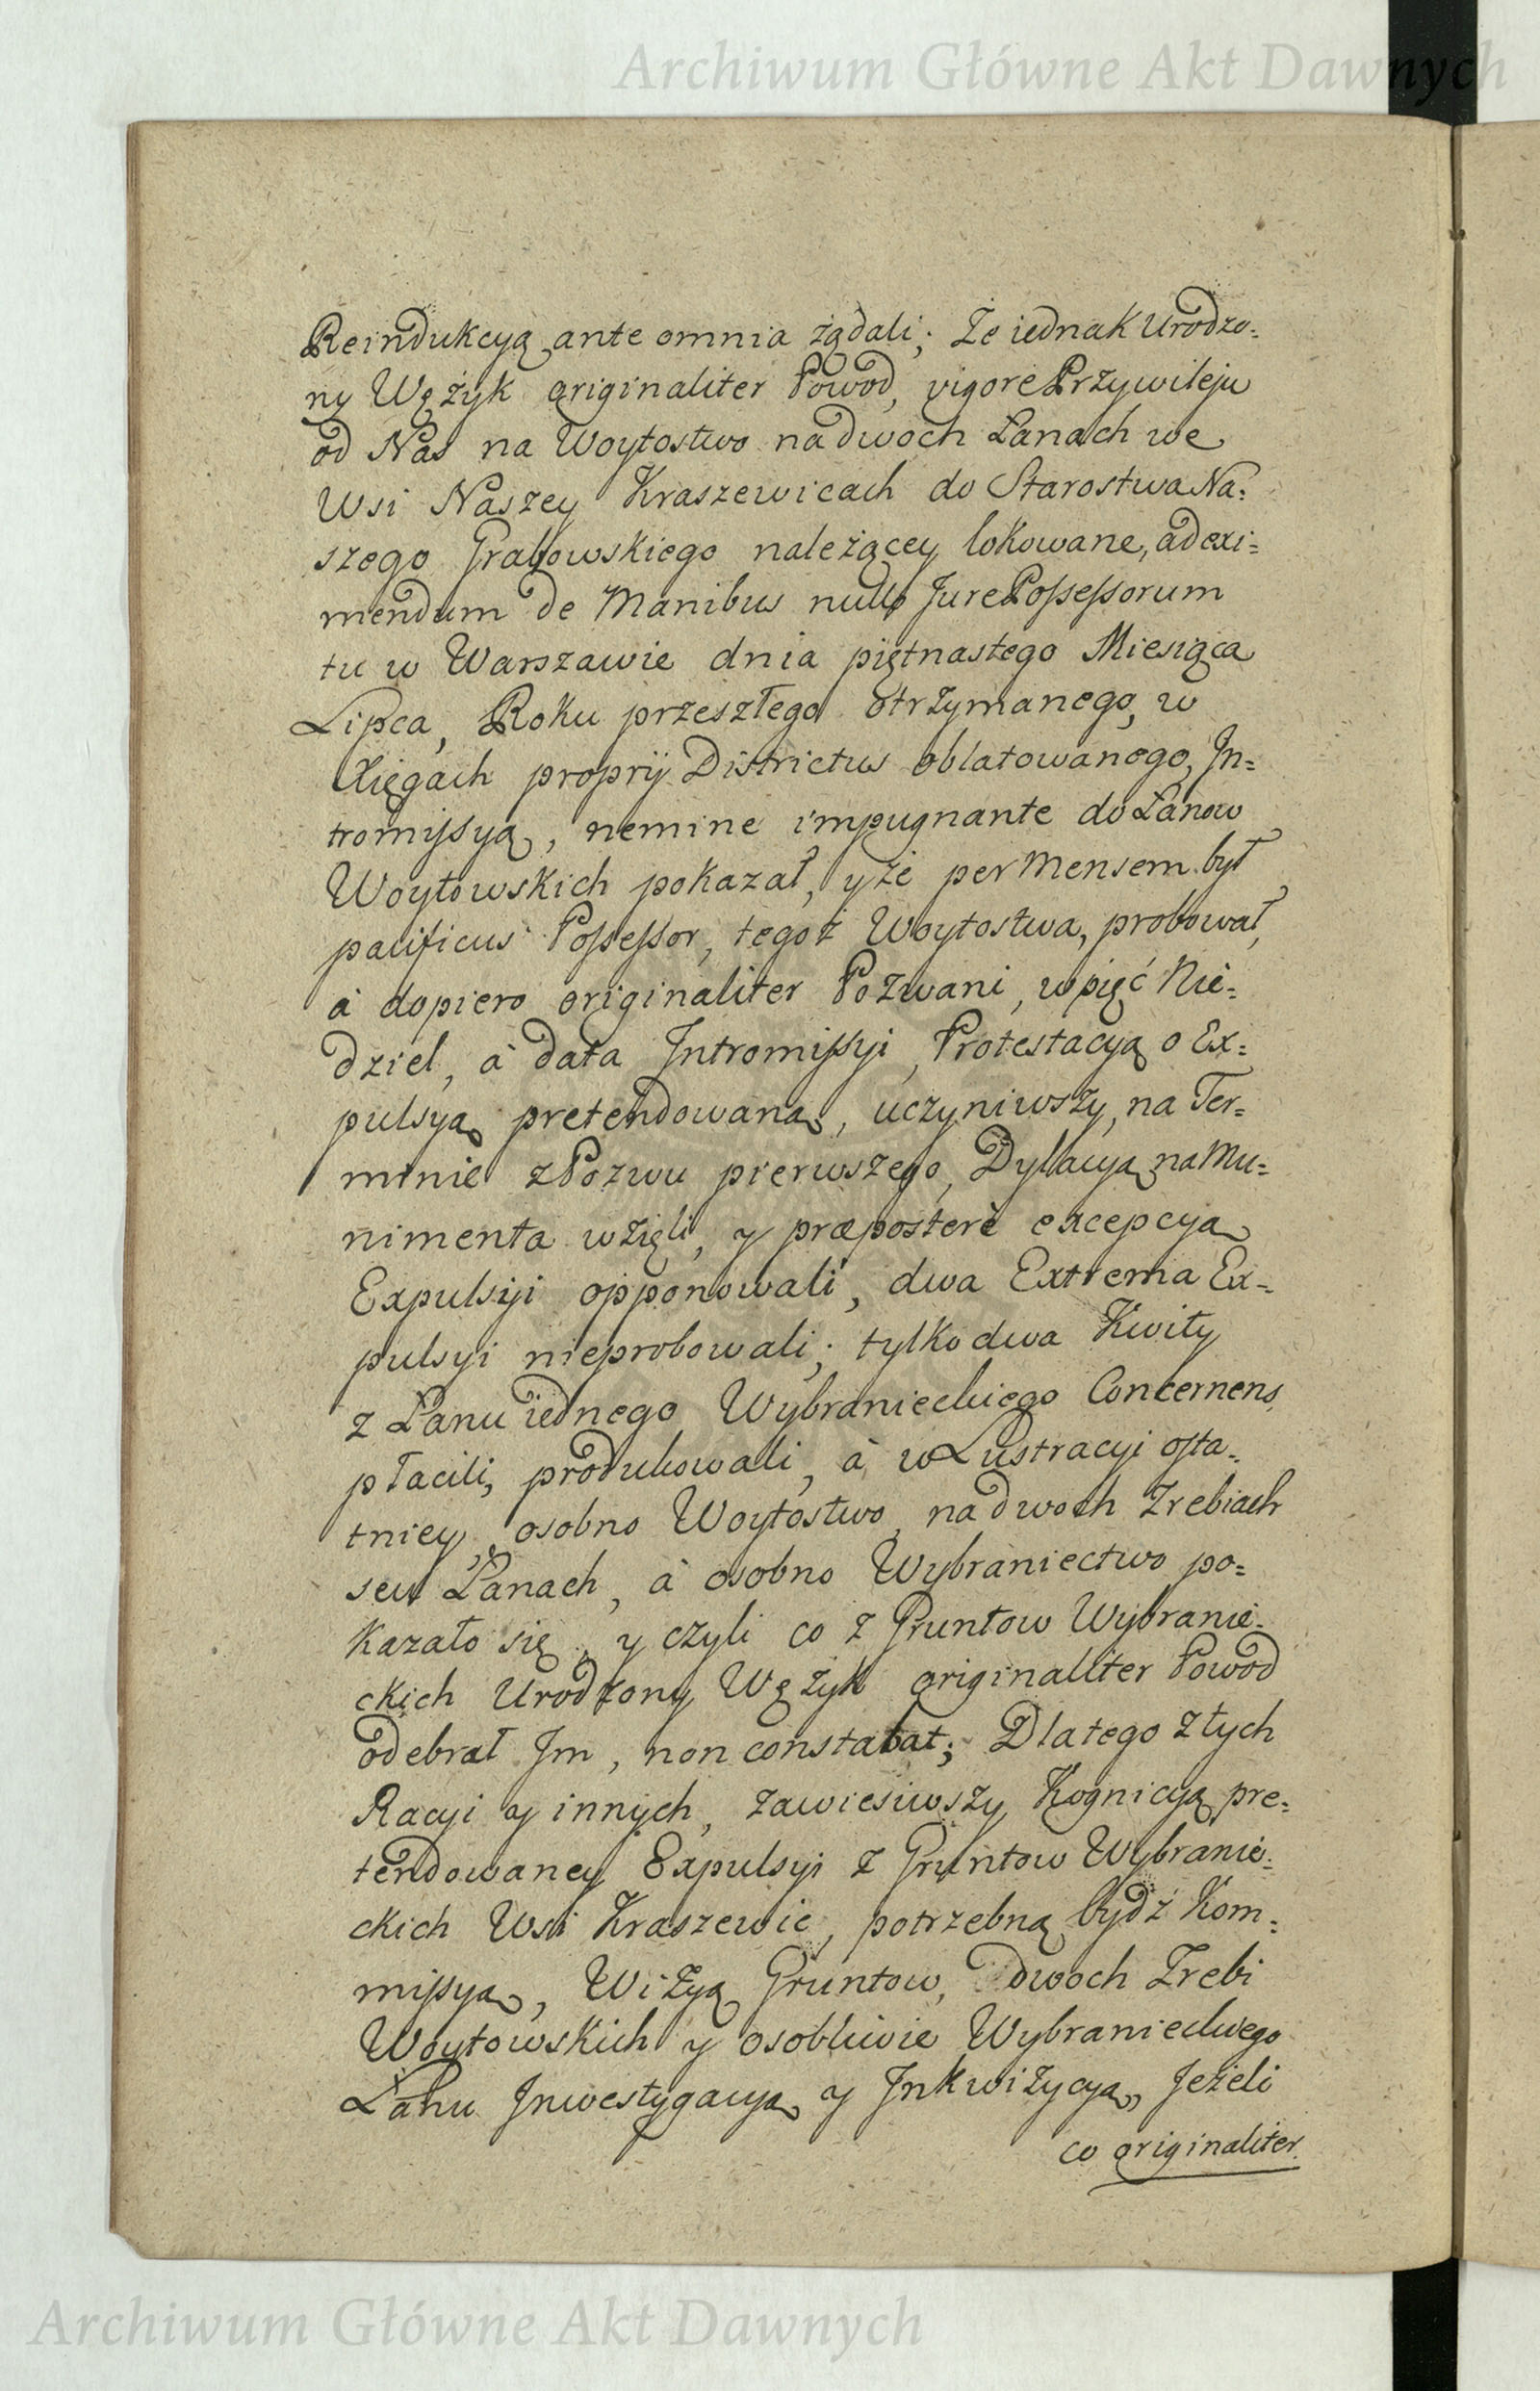 Archiwum Główne Akt Dawnych
Reindukcyą ante omnia żądali; Że iednak Urodzo=
ny Wężyk originaliter Powod, vigore Przywileju
od Nas na Woytostwo na dwoch Łanach we
Wsi Naszey Kraszewicach do Starostwa Na=
szego Grabowskiego należącey lokowane, ad exi=
mendum de Manibus nullo Jure Possessorum
tu w Warszawie dnia piętnastego Miesiąca
Lipca, Roku przeszłego otrzymanego, w
Xięgach proprij Districtus oblatowanego, In=
tromissyą, nemine impugnante do Łanow
Woytowskich pokazał, y że per Mensem był
pacificus Possessor, tegoż Woytostwa, probował,
à dopiero originaliter Pozwani, w pięć Nie=
dziel, à data Intromissyi, Protestacyą o Ex=
pulsyą pretendowaną, uczyniwszy, na Ter=
minie z Pozwu pierwszego, Dylacyą na Mu=
nimenta wzięli, y præposterè excepcyą
Expulsyi opponowali, dwa Extrema Ex=
pulsyi nieprobowali; tylko dwa Kwity
z Łanu iednego Wybranieckiego Concernens
płacili, produkowali, à w Lustracyi osta=
tniey, osobno Woytostwo, na dwoch Zrebiach
seu Łanach, à osobno Wybraniectwo po=
kazało się, y czyli co z Gruntow Wybranie=
ckich Urodzony Wężyk originaliter Powod
odebrał Im, non constabat; Dlatego z tych
Racyi y innych, zawiesiwszy Kognicyą pre=
tendowaney Expulsyi z Gruntow Wybranie=
ckich Wsi Kraszewic, potrzebną bydź Kom=
missyą, Wizyą Gruntow, dwoch Zrebi
Woytowskich y osobliwie Wybranieckiego
Łanu Inwestygacyą y Inkwizycyą, Jeżeli
co originaliter
Archiwum Główne Akt Dawnych